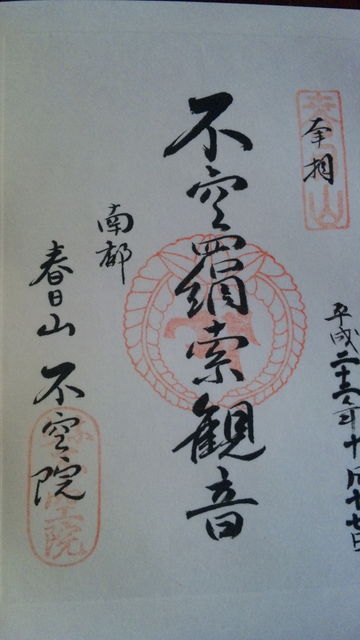 春日山
奉拝
平成二十三年十月十七日
不空羂索観音
南都
春日山 不空院